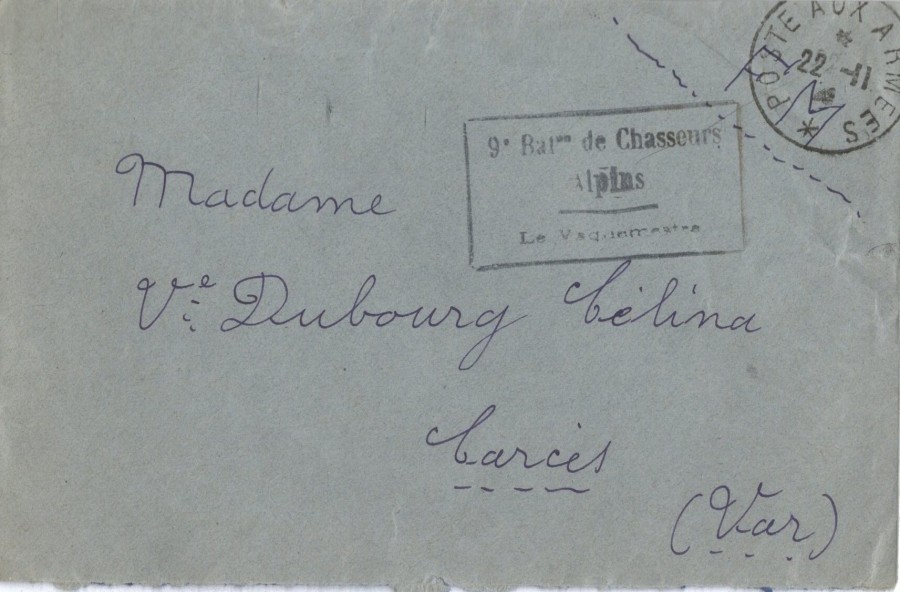 POSTE AUX ARMEES
22 -11
FM
9e Baton de Chasseurs
Alpins
Le Vaguemestre
Madame
Ve Dubourg Célina
Carcès
(Var)